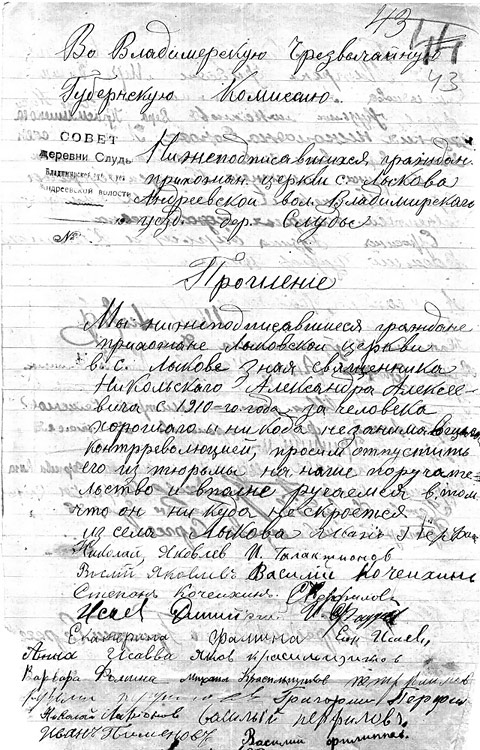 43 44
43
Во Владимерскую Чрезвычайную
Губернскую Комисаю
СОВЕТ
деревни Слуды
Андреевской волости
№
Нижеподписавшихся граждан
прихожан церкви с. Лыкова
Андреевской вол. Владимирского
уезда дер. Слуды
Прошение
Мы нижеподписавшиеся граждане
прихожане Лыковской церкви
в с. Лыкове зная священника
Никольского Александра Алексе-
евича с 1910-го года за человека
хорошаго и никода незанимавшегося
контрреволюцией, просим отпустить
его из тюрьмы на наше поручате-
льство и вполне ругаемся в том
что он ни куда не скроется
из села Лыкова
Николай Яковлев И. Галактионов
Яковлевъ Василий Кочешкинъ
Степонъ Кочешкин
Исаев Дмитрий
Екатирина Фалина Исаев
Анна Исавва Яков Красильников
Варвара Фомина Михаил Красильников
Григорий
Николай Ларионов Василый Перфиловъ
Иванъ Василий Филиппов